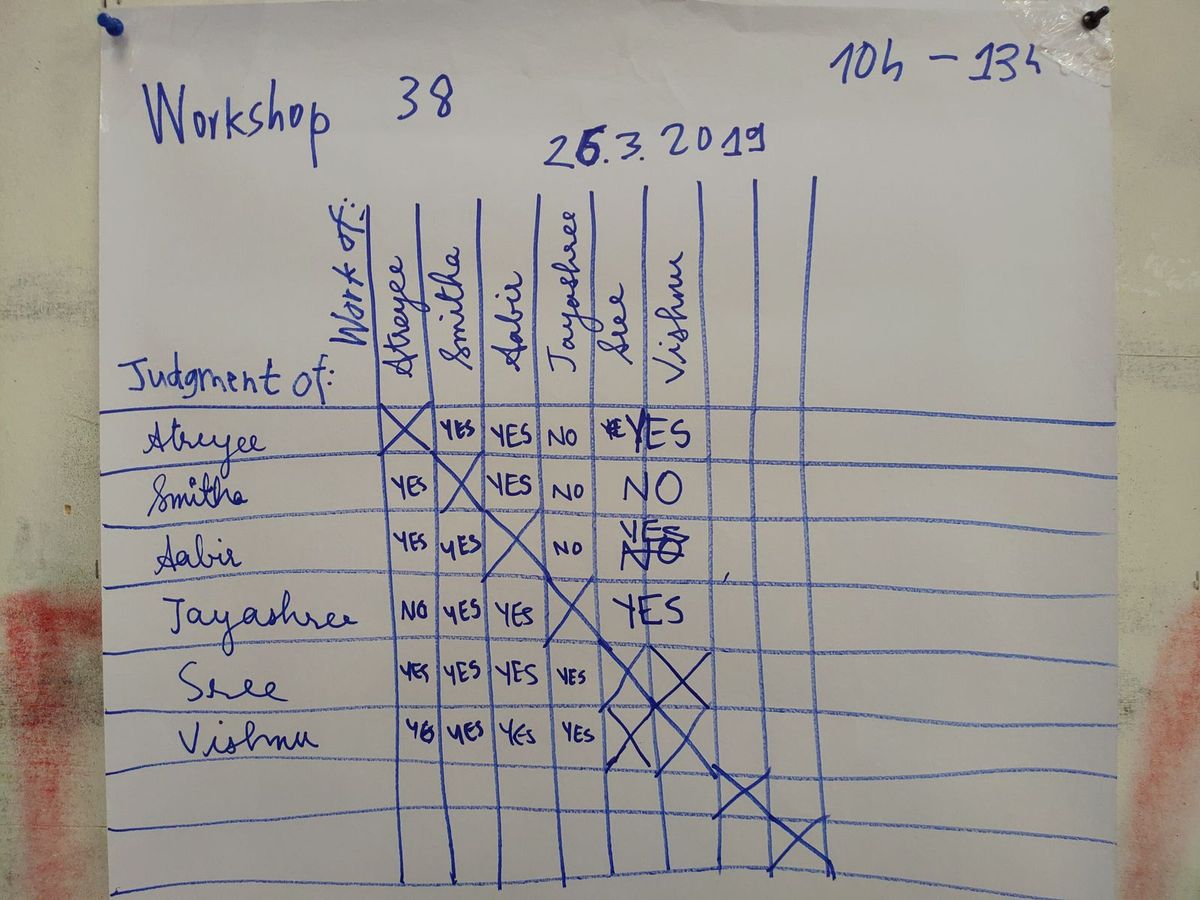 10h - 13h
Workshop 38
26.3.2019
Work of:
Atreyee Smitha Aabir Jayashree Sree Vishnu
Judgment of:
Atreyee YES YES NO YES
Smitha YES YES NO NO
Aabir YES YES NO YES NO
Jayashree NO YES YES YES
Sree YES YES YES YES
Vishnu YES YES YES YES